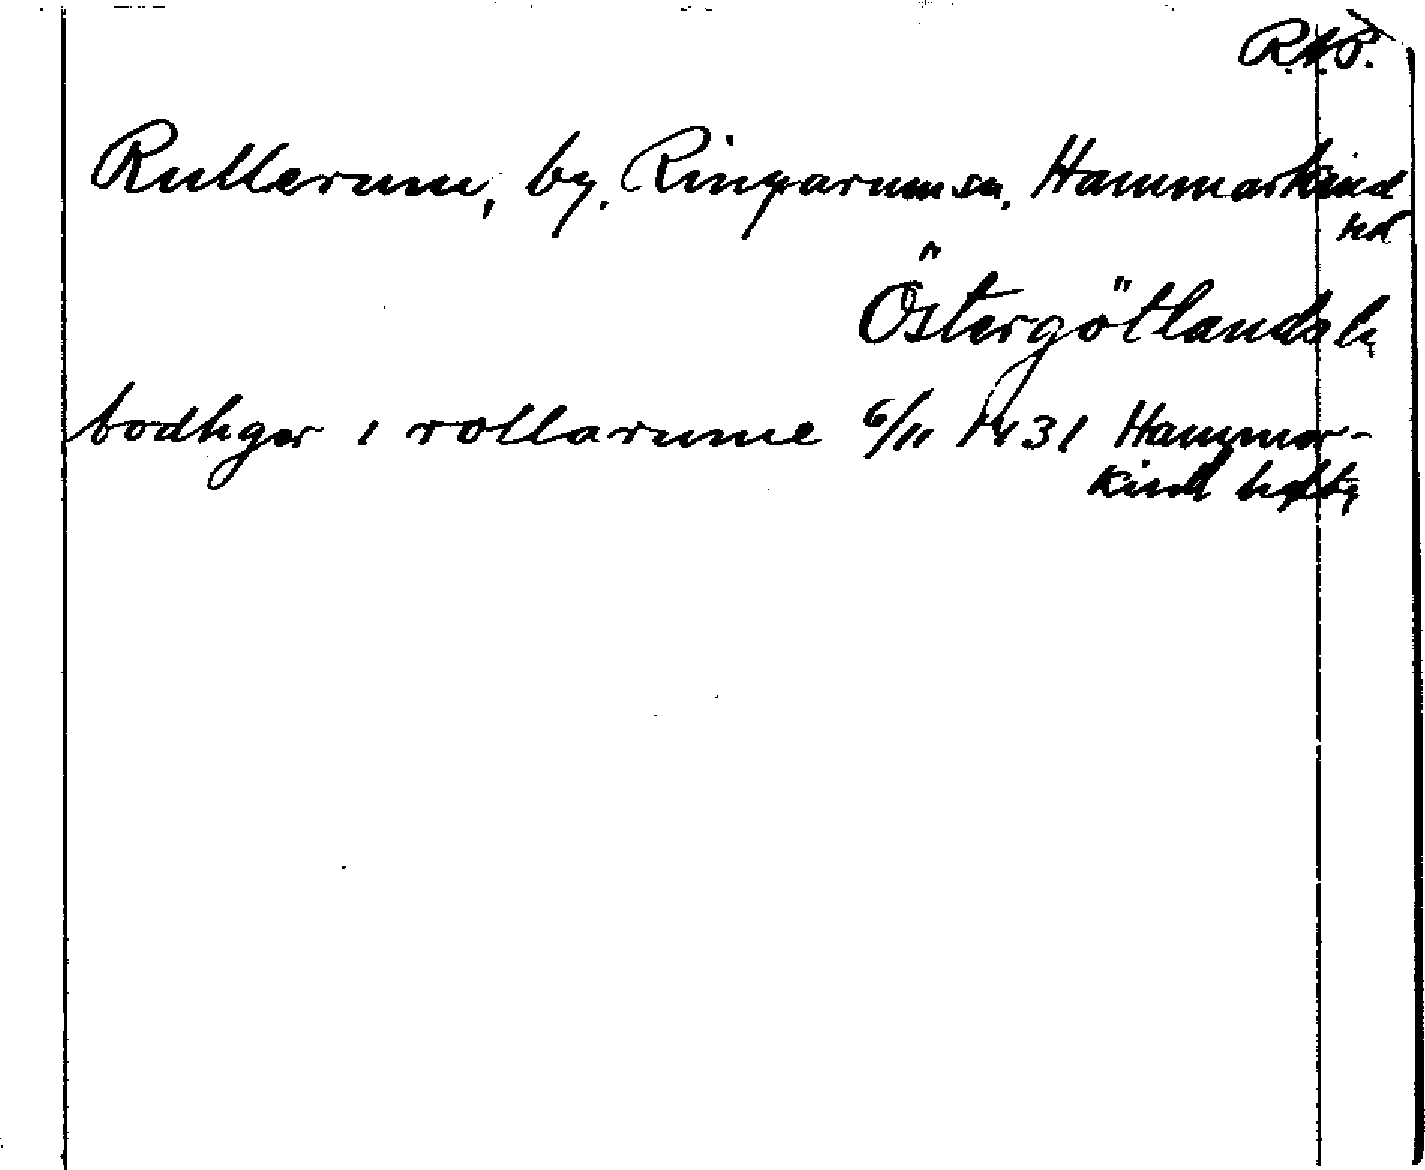 R.A.P.
Rullerum, by. Ringarum sn. Hammarkind
hd
Östergötlands l.
bodhger i rollarume 6/11 1431 Hammar-
kind